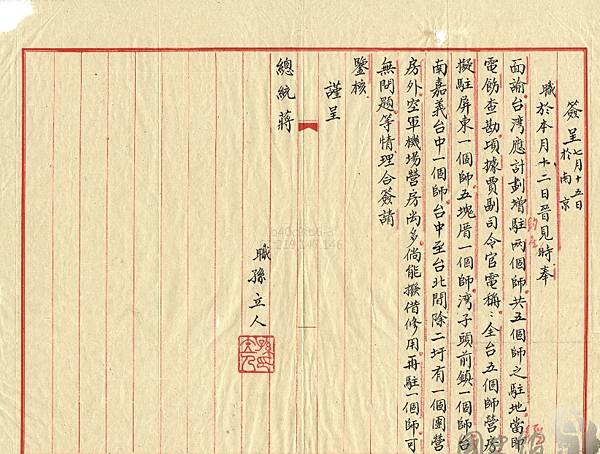 簽呈 七月十五日
於南京
職於本月十二日晉見時奉
面諭台湾應計劃增駐兩個師共五個師之駐地當即
電飭查勘項據賈副司令官電稱：全台五個師營房
擬駐屏東一個師五塊厝一個師湾子頭前鎮一個師台
南嘉義台中一個師台中至台北間除二圩有一個團營
房外空軍機場營房尚多倘能撥借修用再駐一個師可
無問題等情理合簽請
鑒核
謹呈
總統蔣
職孫立人